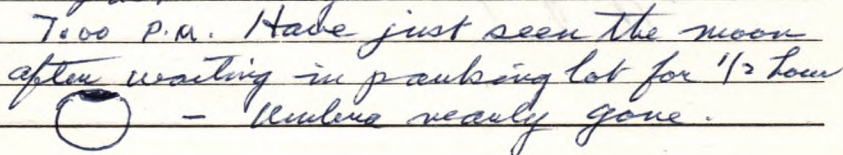 7:00 P.M. Have just seen the moon
after waiting in parking lot for 1/2 hour
- Umbra nearly gone.